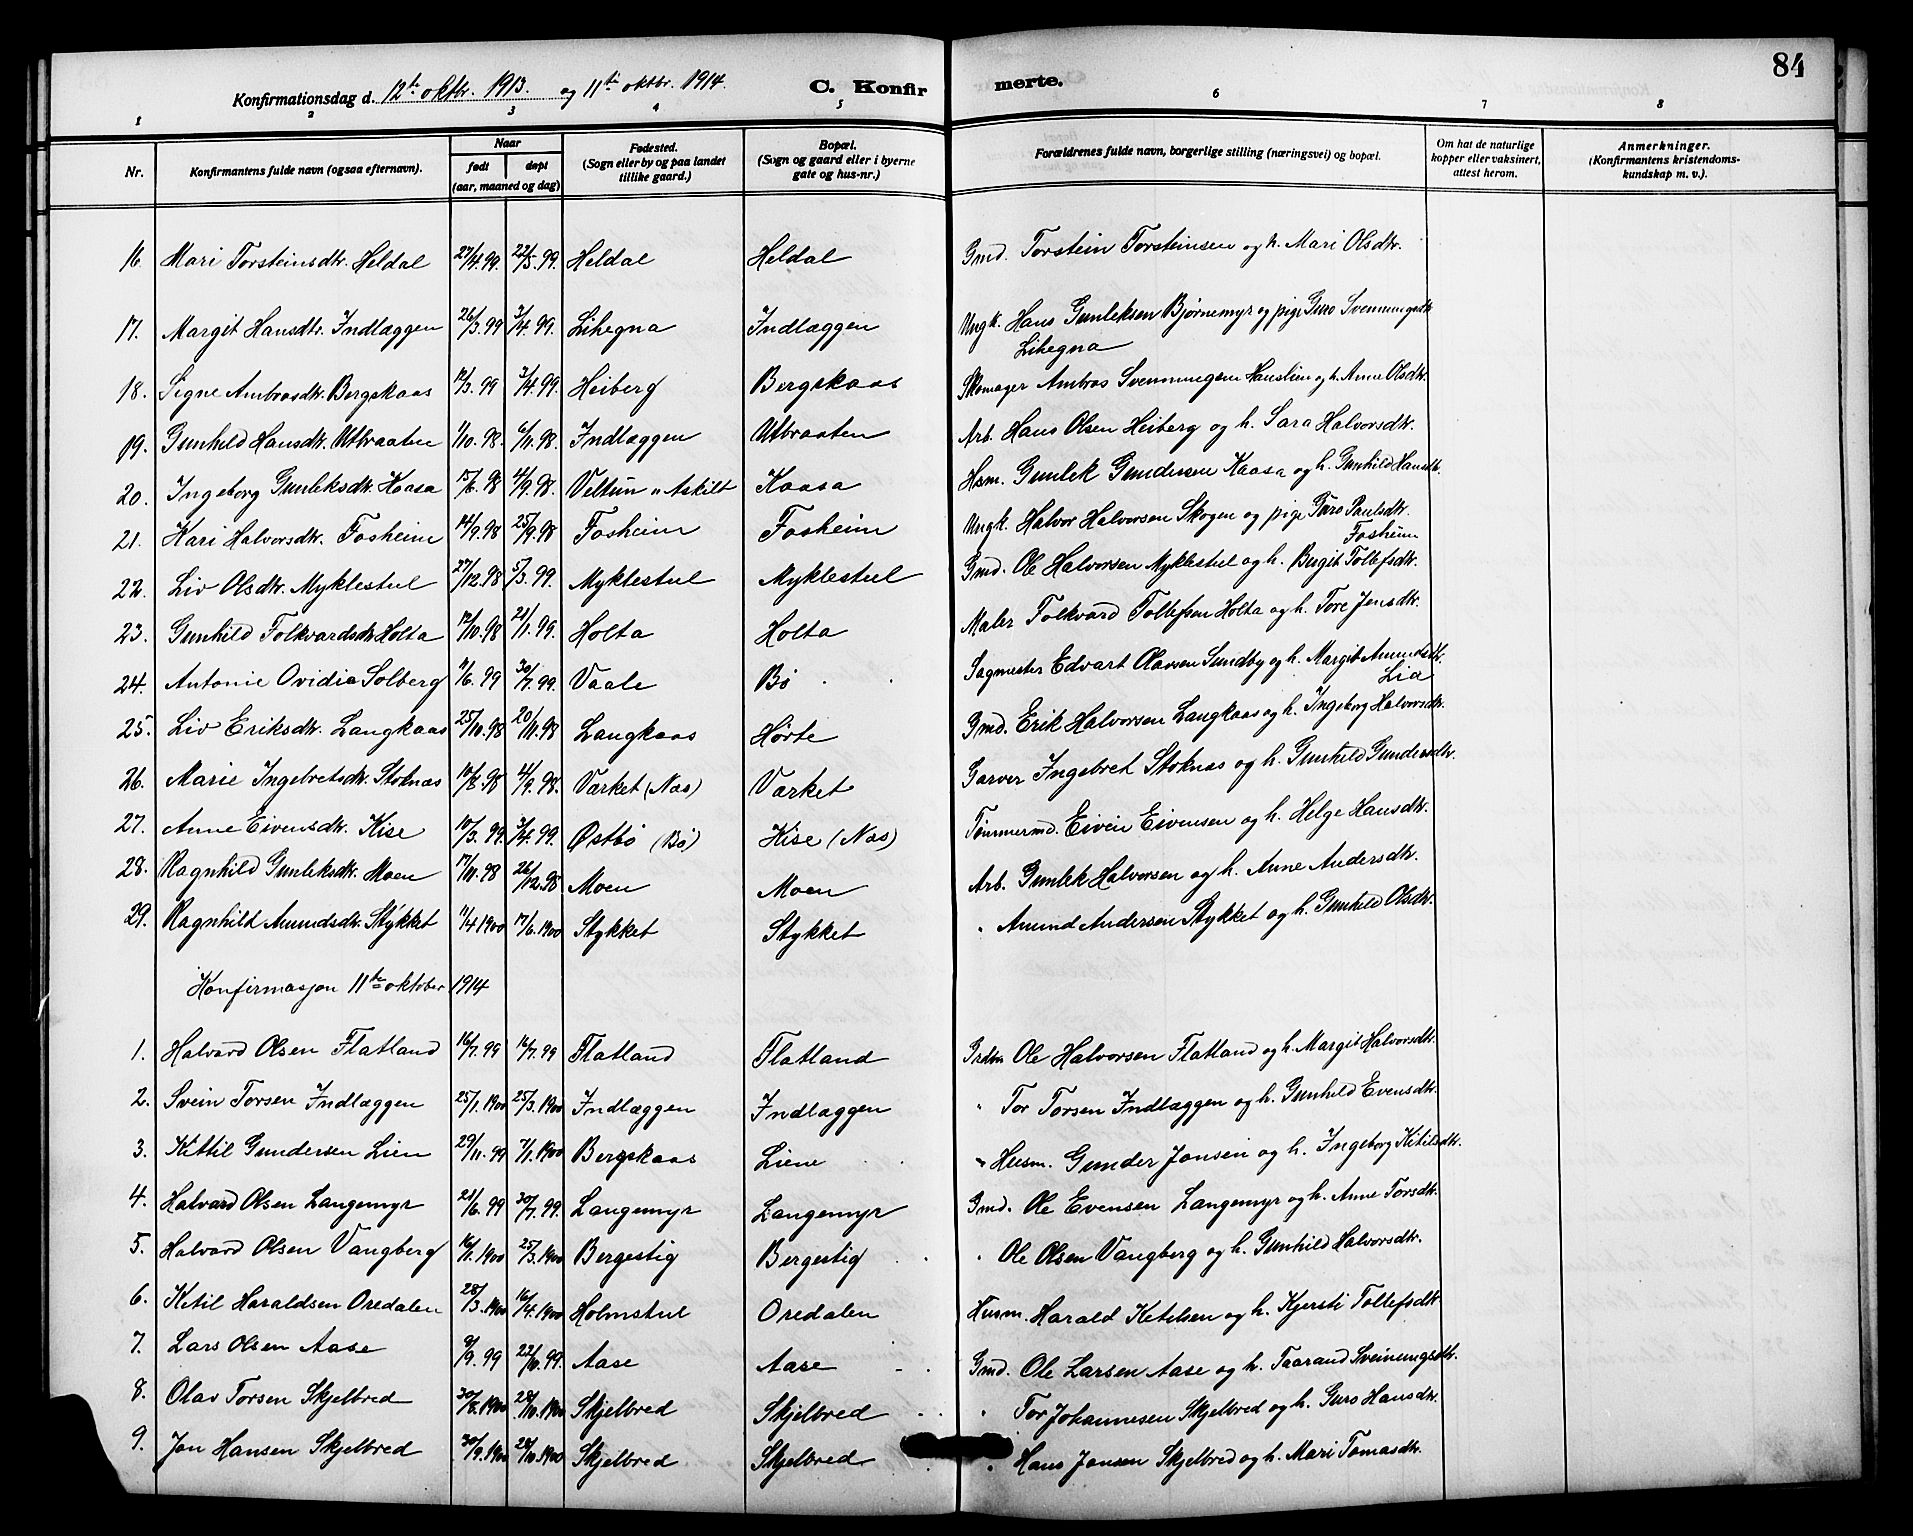 84
Konfirmationsdag d. 12te oktbr. 1913. og 11te oktbr. 1914. C. Konfirmerte.
1 2 3 4 5 6 7 8
Nr. Konfirmantens fulde navn (ogsaa efternavn). Naar født døpt (aar, maaned og dag) Fødested. (Sogn eller by og paa landet tillike gaard.) Bopæl. (Sogn og gaard eller i byerne gate og hus-nr.) Forældrenes fulde navn, borgerlige stilling (næringsvei) og bopæl. Om hat de naturlige kopper eller vaksinert, attest herom. Anmerkninger. (Konfirmantens kristendomskundskap m. v.).
16. Mari Torsteinsdtr. Heldal 27/4.99. 22/5.99. Heldal Heldal Gmd. Torstein Torsteinsen og h. Mari Olsdtr.
17. Margit Hansdtr. Indlæggen 26/3.99 3/4.99. Lihegna Indlæggen Ungk. Hans Gunleksen Bjørnemyr og pige Guro Svenningsdtr
Lihegna
18. Signe Ambrosdtr. Bergskaas 12/3.99 3/4.99. Heiberg Bergskaas Skomager Ambros Svenningsen Hauslien og h. Anne Olsdtr.
19. Gunhild Hansdtr. Utbraaten 1/10.98. 6/11.98. Indlæggen Utbraaten Arb. Hans Olsen Heiberg og h. Sara Halvorsdtr.
20. Ingeborg Gunleksdtr. Kaasa 15/6.98 4/9.98. Veltun u. Askilt Kaasa Hsm. Gunlek Gundersen Kaasa og h. Gunhild Hansdtr.
21. Kari Halvorsdtr. Fosheim 14/9.98 25/9.98 Fosheim Fosheim Ungk. Halvor Halvorsen Skogen og pige Taro Paulsdtr.
Fosheim
22. Liv Olsdtr. Myklestul 27/12.98 5/3.99. Myklestul Myklestul Gmd. Ole Halvorsen Myklestul og h. Birgit Tollefsdtr.
23. Gunhild Folkvardsdtr Holta 12/10.98 21/1.99. Holta Holta Maler Folkvard Tollefsen Holta og h. Tore Jensdtr.
24. Antonie Ovidia Solberg 11/6.99 30/7.99. Vaale Bø Sagmester Edvart Olavsen Sundby og h. Margit Amundsdtr.
Lia
25. Liv Eriksdtr. Langkaas 25/10.98 20/11.98 Langkaas Hørte Gmd. Erik Halvorsen Langkaas og h. Ingeborg Halvorsdtr.
26. Marie Ingebretsdtr. Stoknæs 10/8.98 4/9.98. Varket (Næs) Varket Garver Ingebret Stoknæs og h. Gunhild Gundersdtr.
27. Anne Eivensdtr. Kise 10/3.99. 3/4.99. Østbø (Bø) Kise (Næs) Tømmermd. Eivein Eivensen og h. Helge Hansdtr.
28. Ragnhild Gunleksdtr. Moen 17/11.98 26/12.98 Moen Moen Arb. Gunlek Halvorsen og h. Anne Andersdtr.
29. Ragnhild Amundsdtr. Stykket 11/4 1900 17/6.1900 Stykket Stykket " Amund Andersen Stykket og h. Gunhild Olsdtr.
Konfirmasjon 11te oktober 1914
1. Halvard Olsen Flatland 16/7.99 16/7.99 Flatland Flatland Grdm Ole Halvorsen Flatland og h. Margit Halvorsdtr.
2. Svein Torsen Indlæggen 25/1.1900 25/3.1900 Indlæggen Indlæggen " Tor Torsen Indlæggen og h. Gunhild Evensdtr.
3. Kittil Gundersen Lien 29/11.99 7/1.1900 Bergskaas Liene " Husm. Gunder Jonsen og h. Ingeborg Kitilsdtr.
4. Halvard Olsen Langemyr 21/6.99 30/7.99. Langemyr Langemyr Gmd. Ole Evensen Langemyr og h. Anne Torsdtr.
5. Halvard Olsen Vangberg 16/1.1900 25/3.1900 Bergestig Bergestig " Ole Olsen Vangberg og h. Gunhild Halvorsdtr.
6. Ketil Haraldsen Oredalen 28/3.1900 16/4.1900 Holmstul Oredalen Husm. Harald Ketilsen og h. Kjersti Tollefsdtr
7. Lars Olsen Aase 9/9.99 22/10.99. Aase Aase Gmd. Ole Larsen Aase og h. Taarand Sveinungsdtr.
8. Olav Torsen Skjelbred 30/8.1900 28/10.1900 Skjelbred Skjelbred " Tor Johannesen Skjelbred og h. Guro Hansdtr.
9. Jon Hansen Skjelbred 30/9.1900 28/10.1900 Skjelbred Skjelbred " Hans Jonsen Skjelbred og h. Mari Tomasdtr.